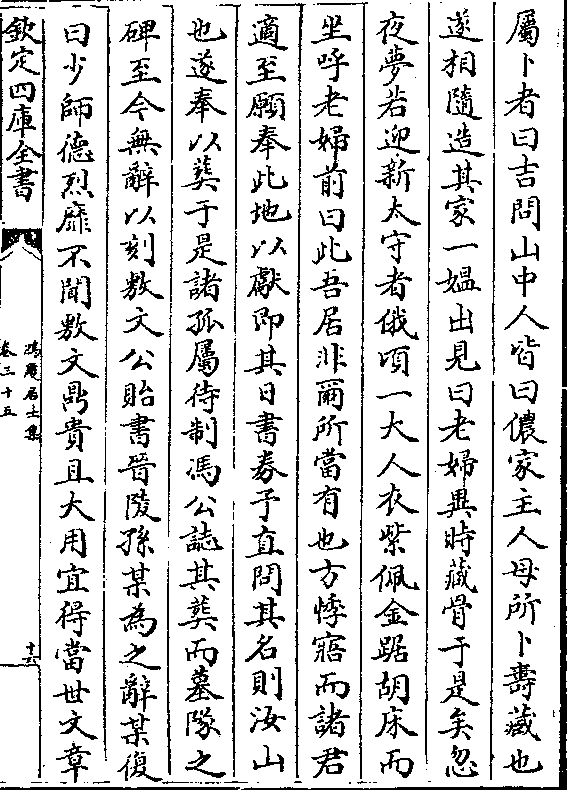 屬卜者曰吉問山中人皆曰儂家主人母所卜壽藏也
遂相隨造其家一媪出見曰老婦異時藏骨于是矣忽
夜夢若迎新太守者俄頃一大人衣紫佩金踞胡床而
坐呼老婦前曰此吾居非爾所當有也方悸寤而諸君
適至願奉此地以獻即其日書券予直問其名則汝山
也遂奉以葬于是諸孤屬待制馮公誌其葬而墓隧之
碑至今無辭以刻敷文公貽書晉陵孫某為之辭某復
曰少師德烈靡不聞敷文鼎貴且大用宜得當世文章
欽定四庫全書
鴻慶居士集
卷三十五
十六